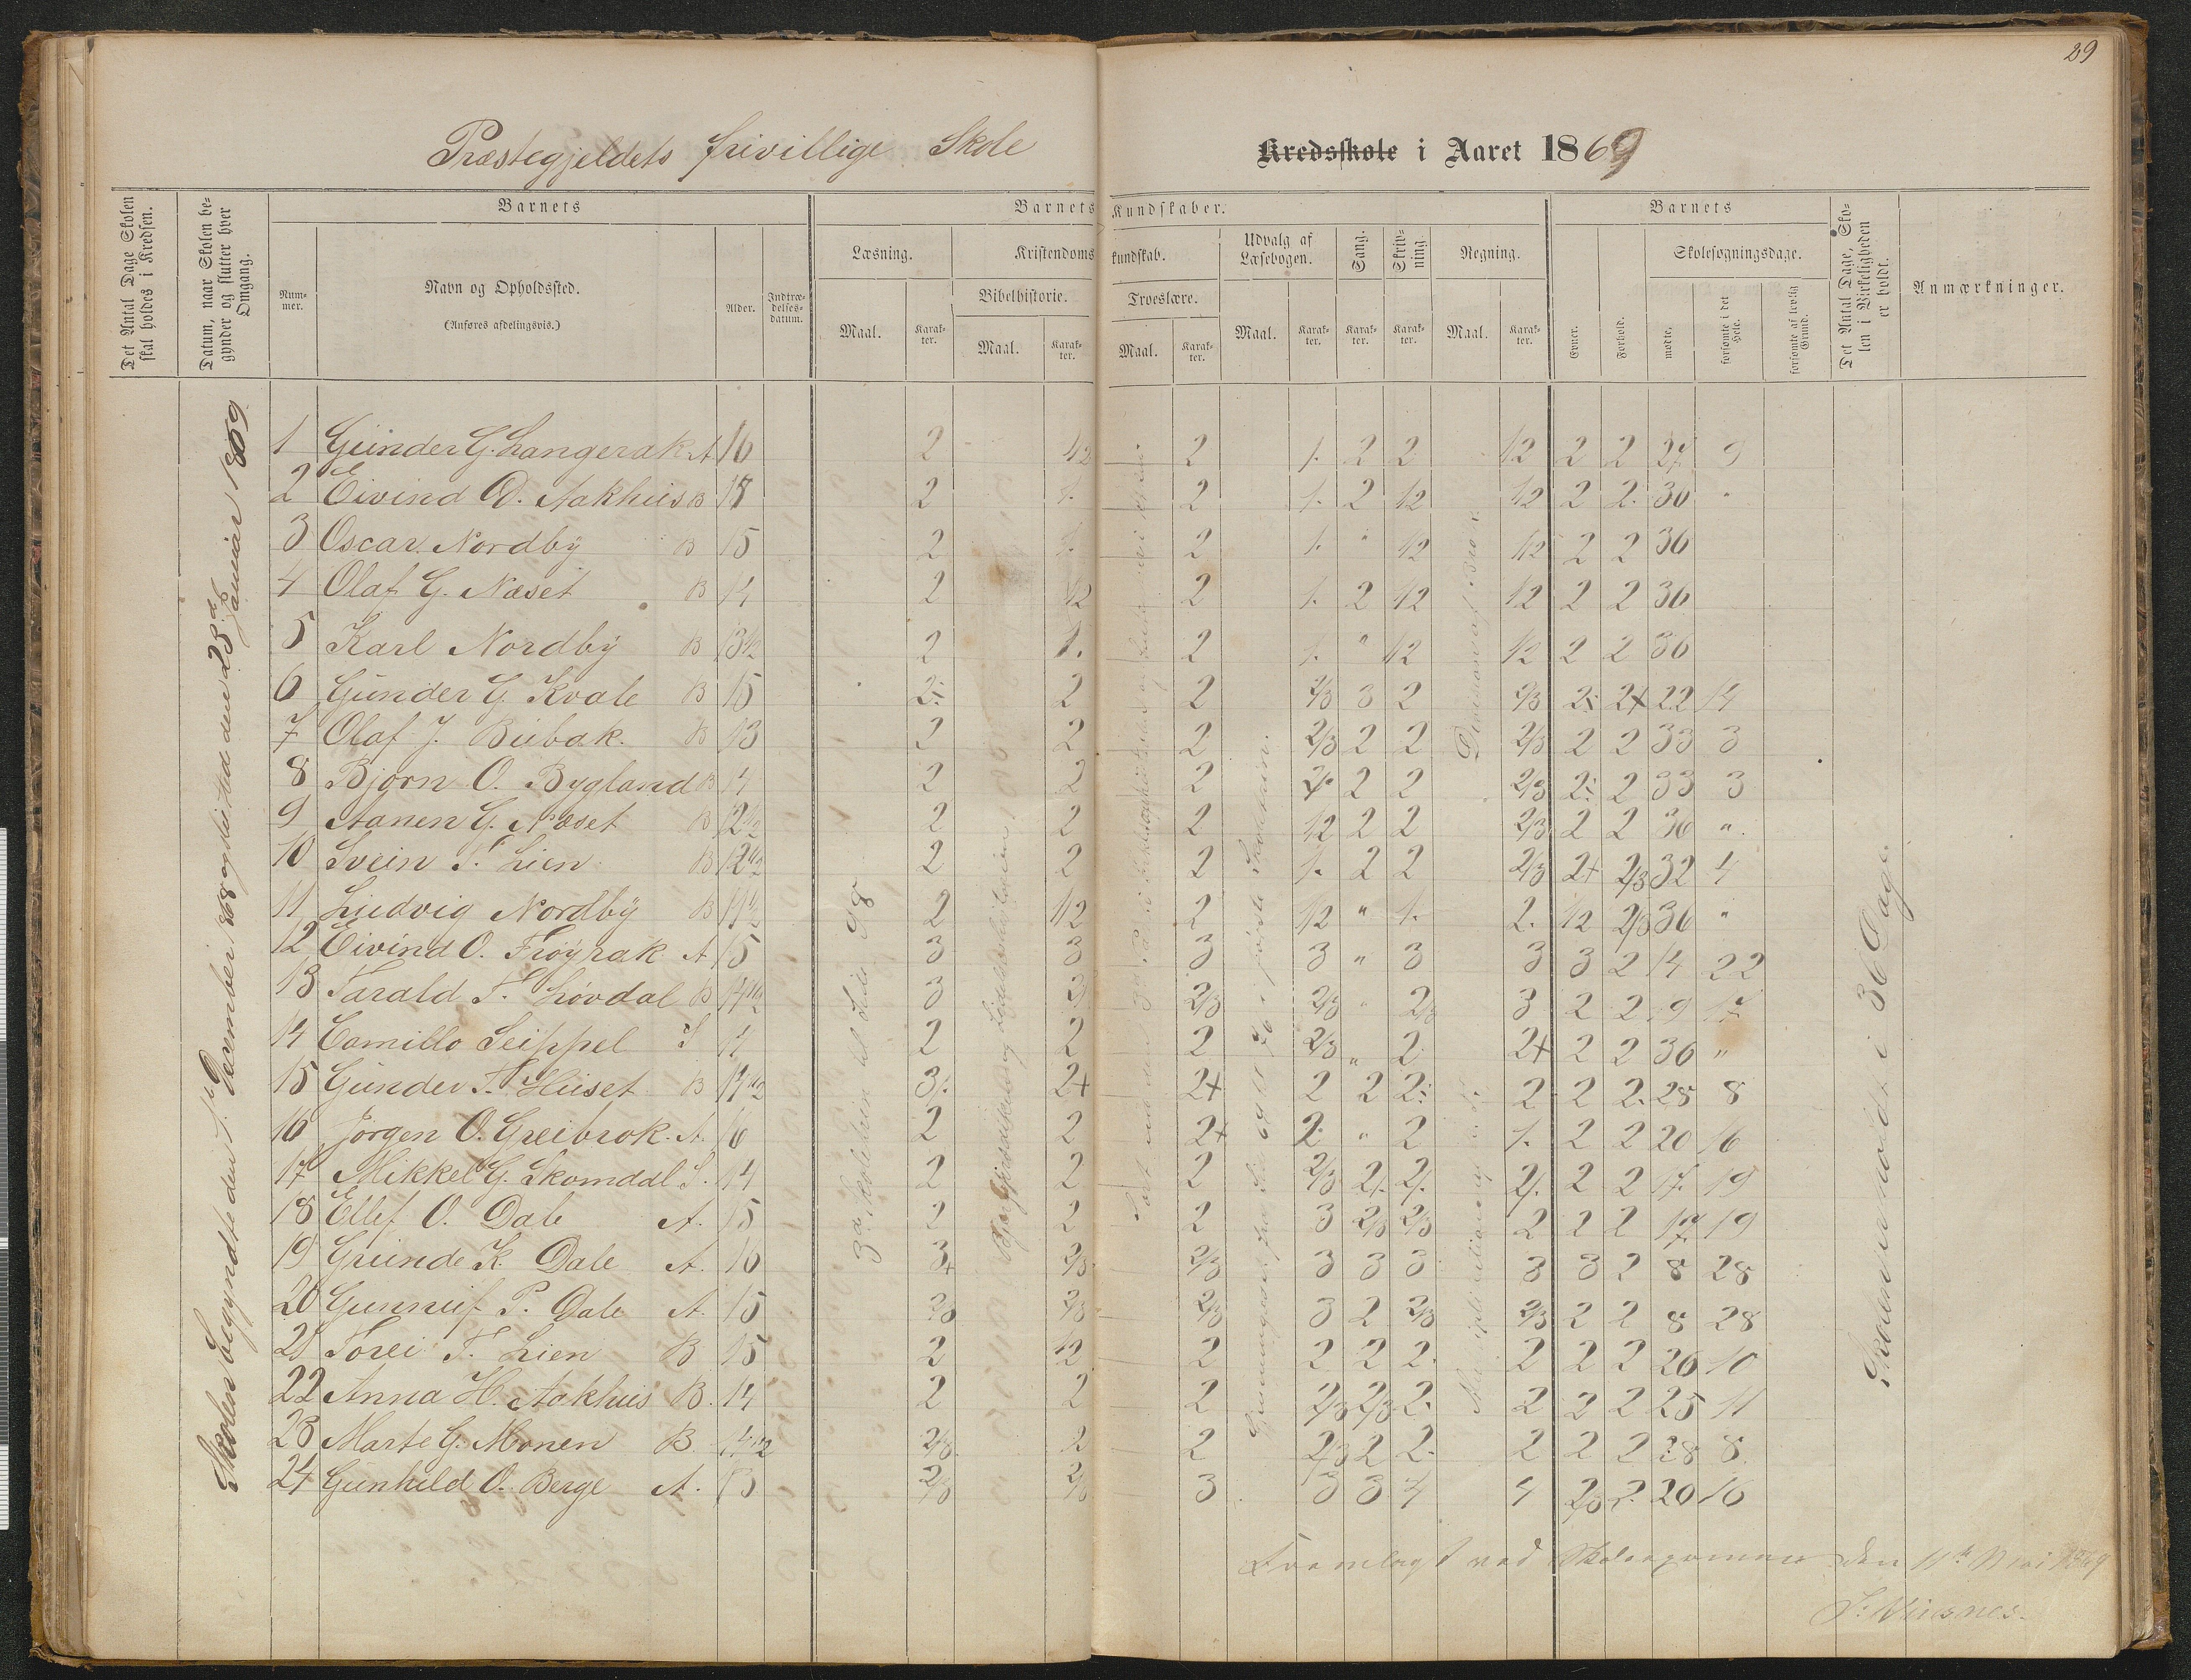 29
Præstegjeldets frivillige Skole Kredsskole i Aaret 1869
Det Antal Dage Skolen skal holdes i Kredsen.
Datum, naar Skolen begynder og slutter hver Omgang.
Barnets
Nummer.
Navn og Opholdssted.
(Anføres afdelingsvis.)
Alder.
Indtrædelsesdatum.
Barnets Kundskaber.
Læsning.
Maal.
Karakter.
Kristendomskundskab.
Bibelhistorie.
Maal.
Karakter.
Troeslære.
Maal.
Karakter.
Udvalg af Læsebogen.
Maal.
Karakter.
Sang.
Karakter.
Skrivning.
Karakter.
Regning.
Maal.
Karakter.
Barnets
Evner.
Forhold.
Skolesøgningsdage.
mødte.
forsømte i det Hele.
forsømte af lovlig Grund.
Det Antal Dage, Skolen i Virkeligheden er holdt.
Anmærkninger.
Skolen begyndte den 1ste December 1868 og slutted den 23d Januar 1869
1 Gunder G. Langerak A 16 2 1/2 2 1. 2 2 1/2 2 2 27 9
2 Eivind O. Aakhus B 18 2 1. 2 1. 2 1/2 1/2 2 2. 36 "
3 Oscar Nordby B 15 2 1. 2 1. " 1/2 1/2 2 2 36
4 Olaf G. Næset B 14 2 1/2 2 1. 2 1/2 1/2 2 2 36
5 Karl Nordby B 13 1/2 2 1. 2 1. " 1/2 1/2 2 2 36
6 Gunder G. Kvale B 15 2 2 2 2/3 3 2 2/3 2 2+ 22 14
7 Olaf J. Bubak. B 13 2 2 2 2/3 2 2 2/3 2 2 33 3
8 Bjørn O. Bygland B 14 2 2 2 2 2 2 2/3 2 2 33 3
9 Aanen G. Næset B 12 1/2 2 2 2 1/2 2 2 2/3 2 2 36 "
10 Svein T. Lien B 12 1/2 2 2 2 1. 2 2 2/3 2+ 2/3 32 4
11 Ludvig Nordby B 11 1/2 2 1/2 2 1/2 " 1. 2. 1/2 2/3 36 "
12 Eivind O. Frøyrak A 15 3 3 3 3 " 3 3 3 2 14 22
13 Tarald T. Løvdal B 14 1/2 3 2/3 2/3 " 2/3 3 2 2 19 17
14 Camillo Seippel S 14 2 2 2 2/3 " 2 2+ 2 2 36 "
15 Gunder T. Huset B 14 1/2 3 2+ 2+ 2 2 2 2 2 2. 28 8
16 Jørgen O. Greibrok. A. 16 2 2 2+ 2 " 2 1. 2 2 20 16
17 Mikkel G. Skomdal S. 14 2 2 2 2/3 2 2 17 19
18 Ellef O. Dale A. 15 2 2 2 3 2/3 2/3 2 2 2 17 19
19 Grunde K. Dale A. 16 3+ 2/3 2/3 3 3 3 3 3 2 8 28
20 Gunnuf P. Dale A. 15 2/3 2/3 2/3 3 2 2/3 2/3 2 2 8 28
21 Torei T. Lien B 15 2 1/2 2 2 2 2. 2 2 2 26 10
22 Anna H. Aakhus B. 14 2 2 2 2/3 2/3 2. 2 2 2 25 11
23 Marte G. Monen B 14 1/2 2/3 2 2 2/3 2 2. 2 2 2 28 8
24 Gunhild O. Berge A. 13 2/3 2/3 3 3 3 4 4 2/3 2. 20 16
3die Skoletrin til Side 98
Division af Brøk
Skolen holdt i 36 Dage
Fremlagt ved Skoleexamen den 11te Mai 1869